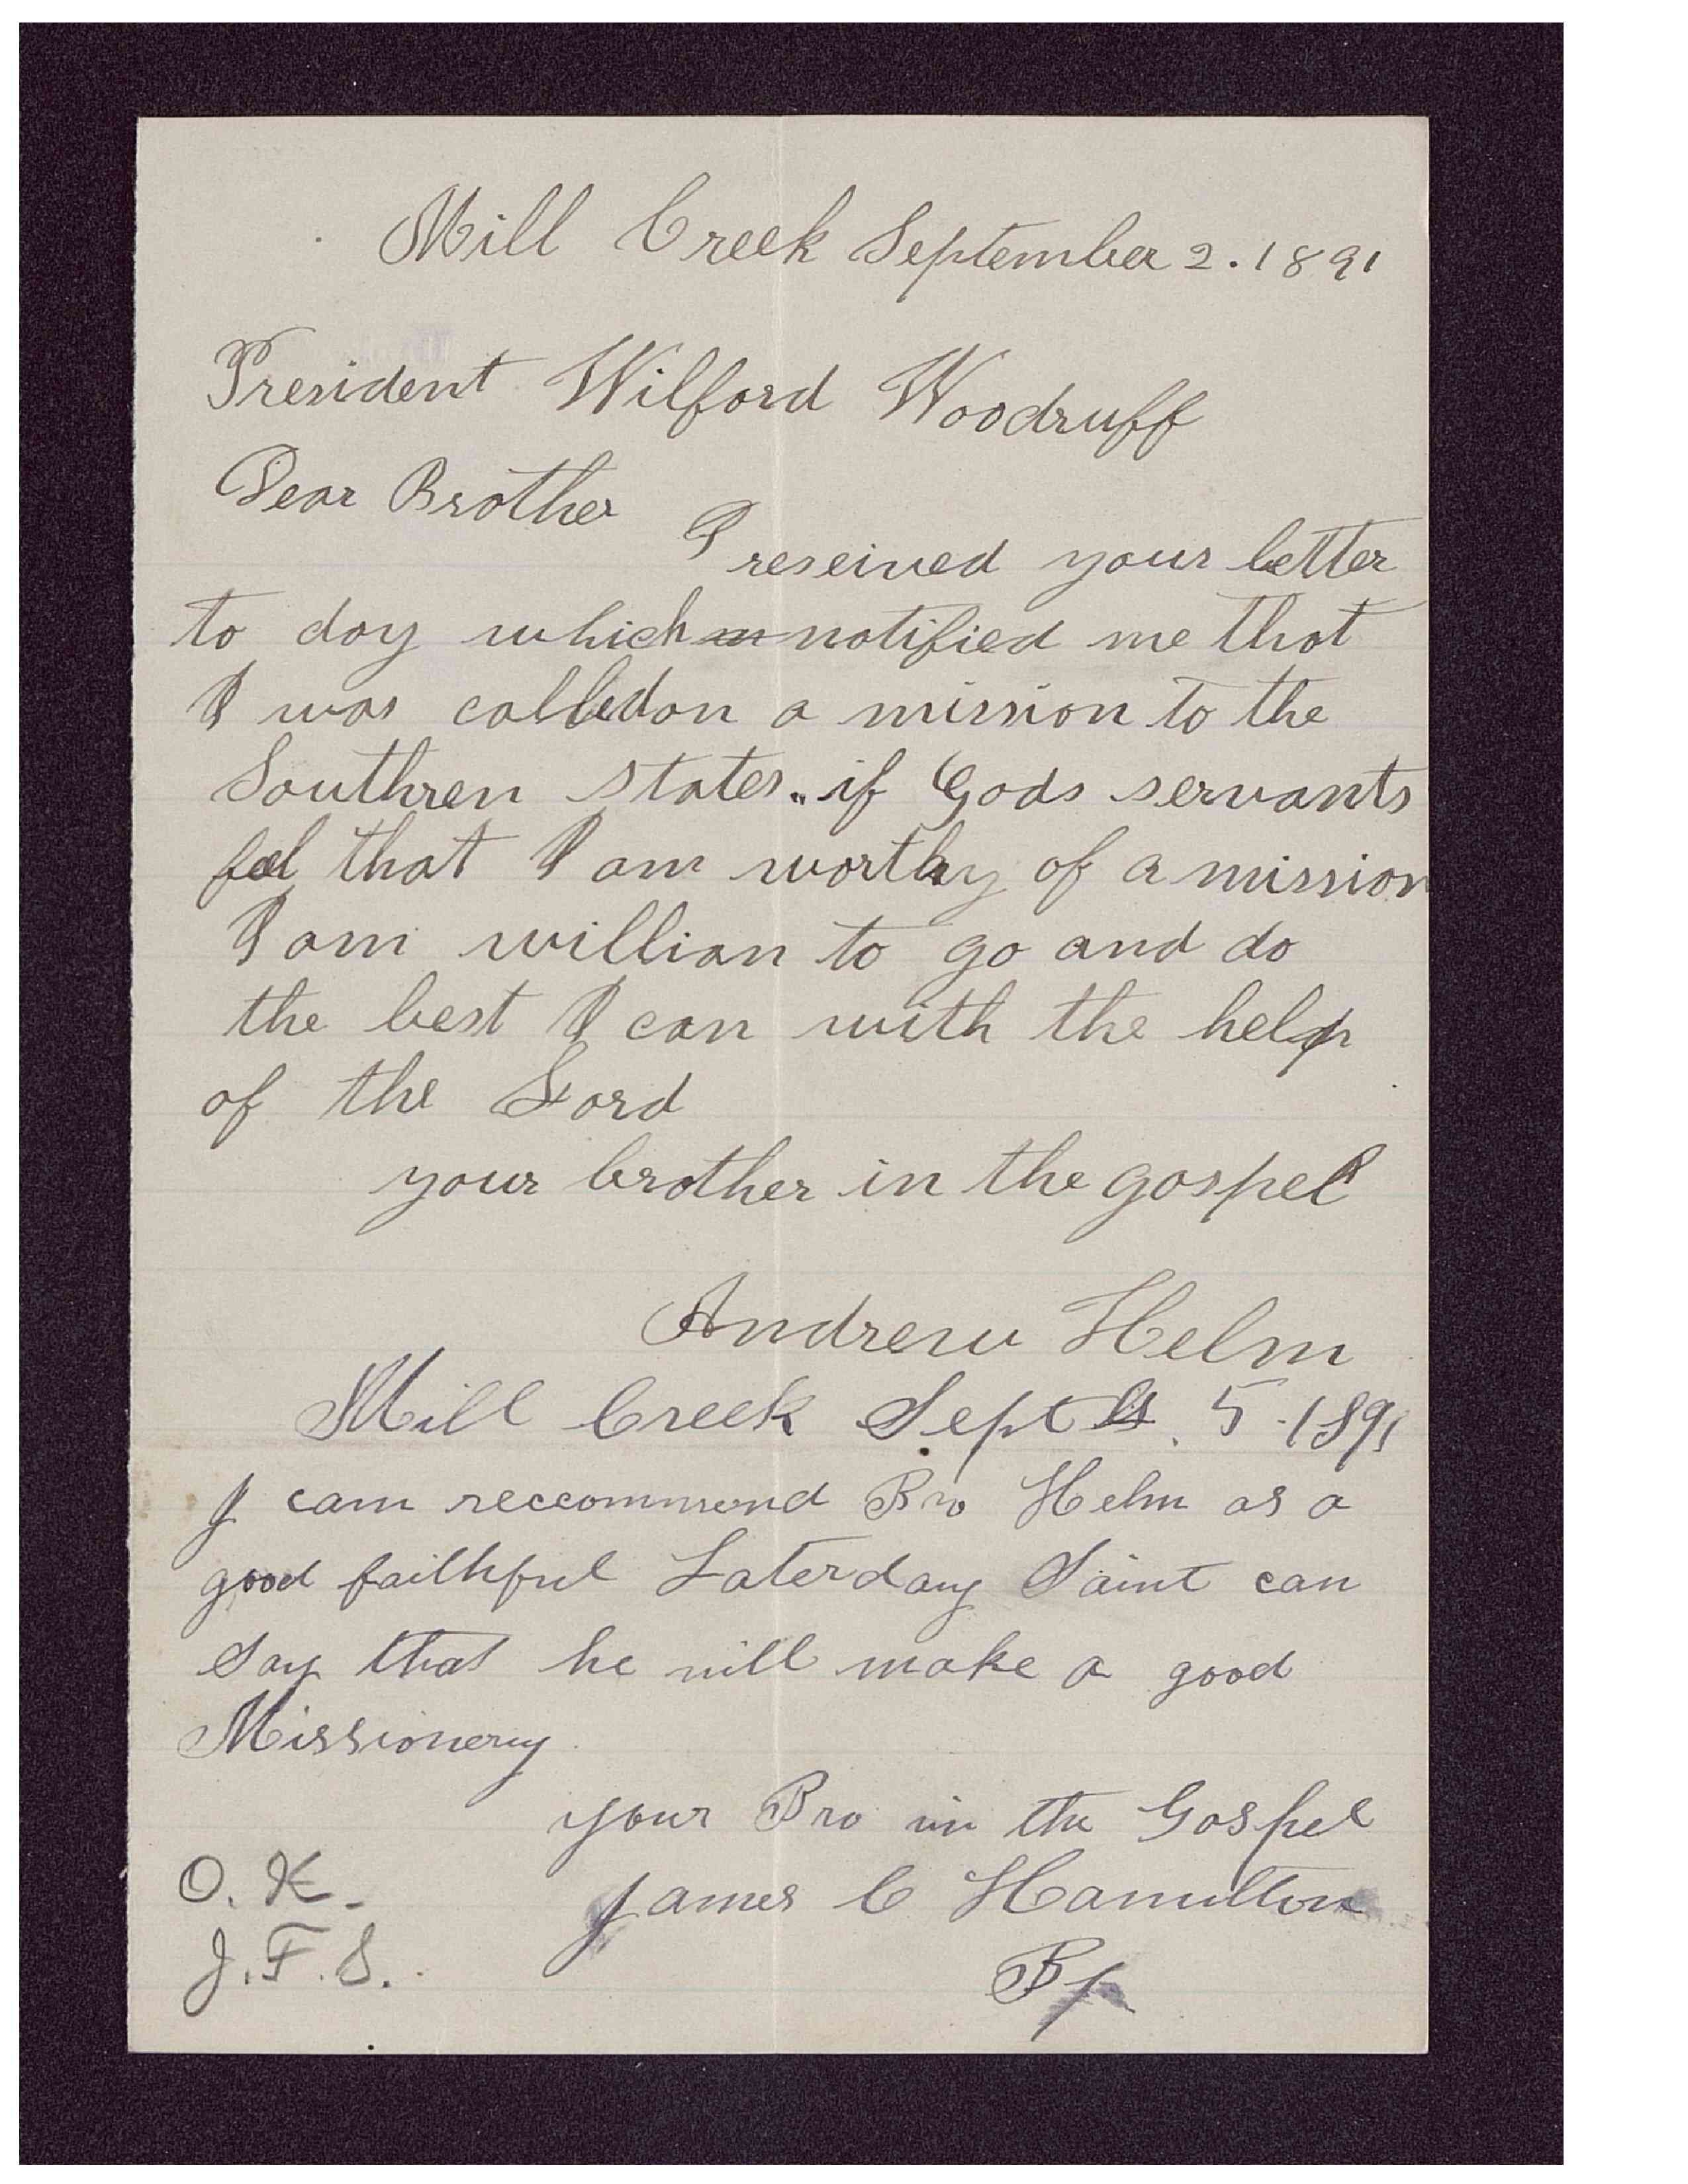 Mill Creek September 2. 1891
President Wilford Woodruff
Dear Brother
I reseived your letter
to day which notified me that
I was called on a mission to the
Southren states. if Gods servants
feel that I am worthy of a mission
I am willian to go and do
the best I can with the help
of the Lord
your brother in the gospel
Andrew Helm
Mill Creek Sept 5 1891
I cam reccommend Bro Helm as a
good faithful Laterday Saint can
say that he will make a good
Missionery
your Bro in the Gospel
James C Hamilton
Bp
O. K.
J. F. S.